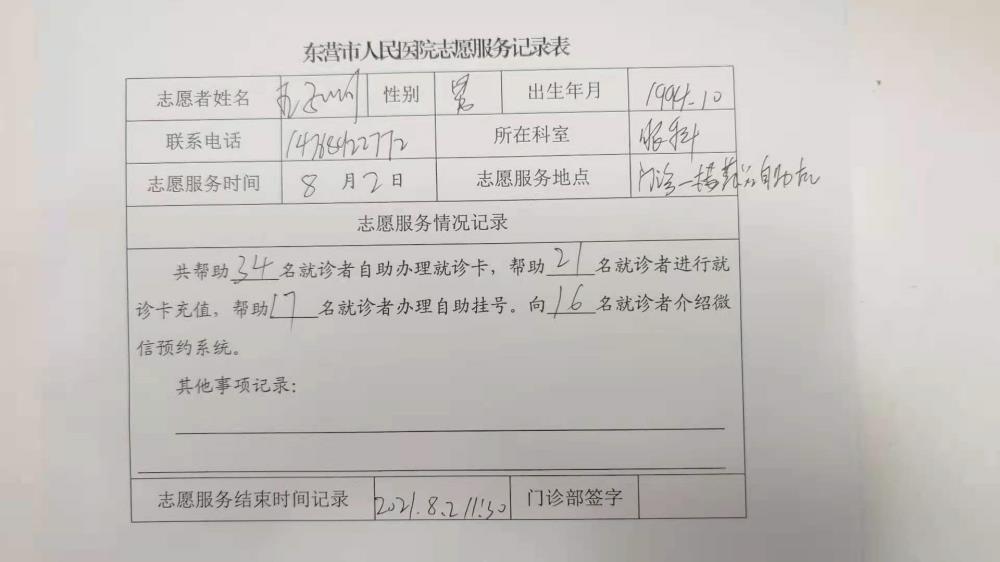 东营市人民医院志愿服务记录表
志愿者姓名 性别 男 出生年月 1994.10
联系电话 所在科室 眼科
志愿服务时间 8 月 2 日 志愿服务地点 门诊一楼 自助机
志愿服务情况记录
共帮助 34 名就诊者自助办理就诊卡，帮助 21 名就诊者进行就
诊卡充值，帮助 17 名就诊者办理自助挂号。向 16 名就诊者介绍微
信预约系统。
其他事项记录：
志愿服务结束时间记录 2021.8.2 11:30 门诊部签字